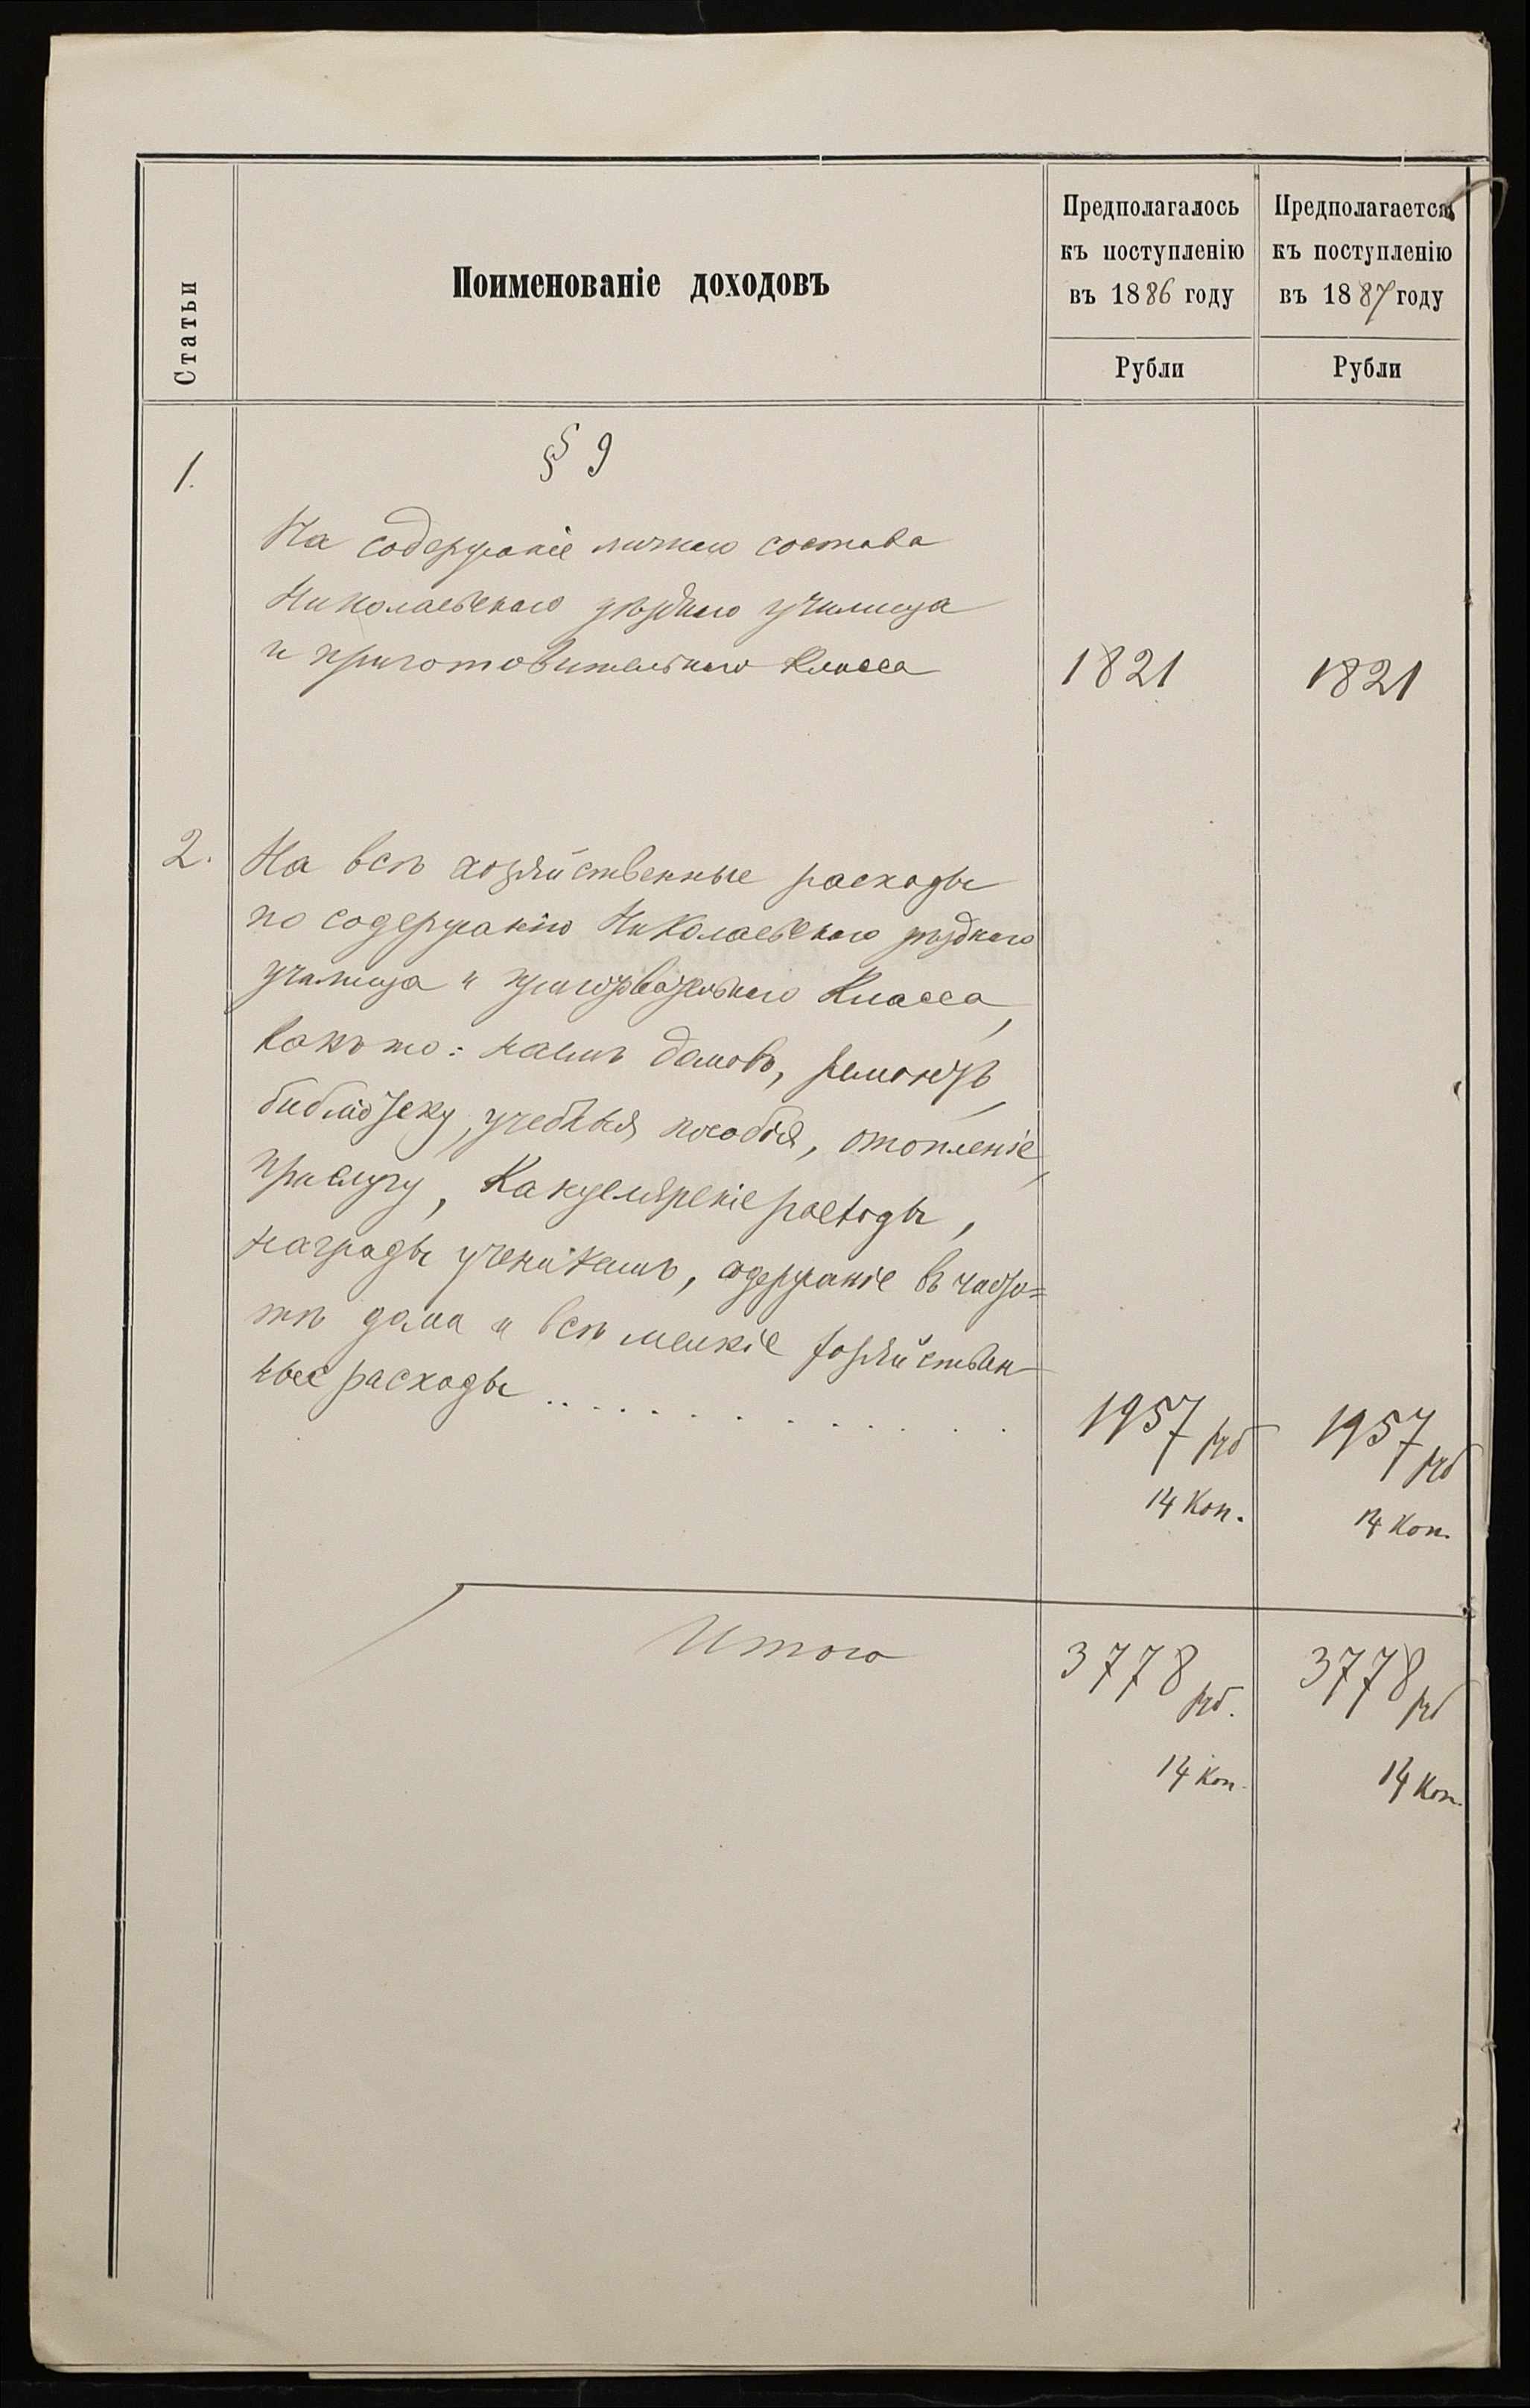 Статьи
Поименованіе доходовъ
Предполагалось
къ поступленію
въ 1886 году
Рубли
Предполагается
къ поступленію
въ 1887 году
Рубли
§ 9
1.
На содержаніе личнаго состава
Николаевскаго уѣзднаго училища
и приготовительнаго класса
1821
1821
2.
На всѣ хозяйственные расходы
по содержанію Николаевскаго уѣзднаго
училища и приготовительнаго класса,
какъ то: наемъ домовъ, ремонтъ,
библіотеку, учебныя пособія, отопленіе,
прислугу, Канцелярскіе расходы,
награды ученикамъ, содержаніе въ чисто=
тѣ дома и всѣ мелкіе хозяйствен
ные расходы . . . . . . . . . . . .
1957 руб
14 Коп.
1957 руб
14 Коп.
Итого
3778 руб.
14 Коп.
3778 руб
14 Коп.